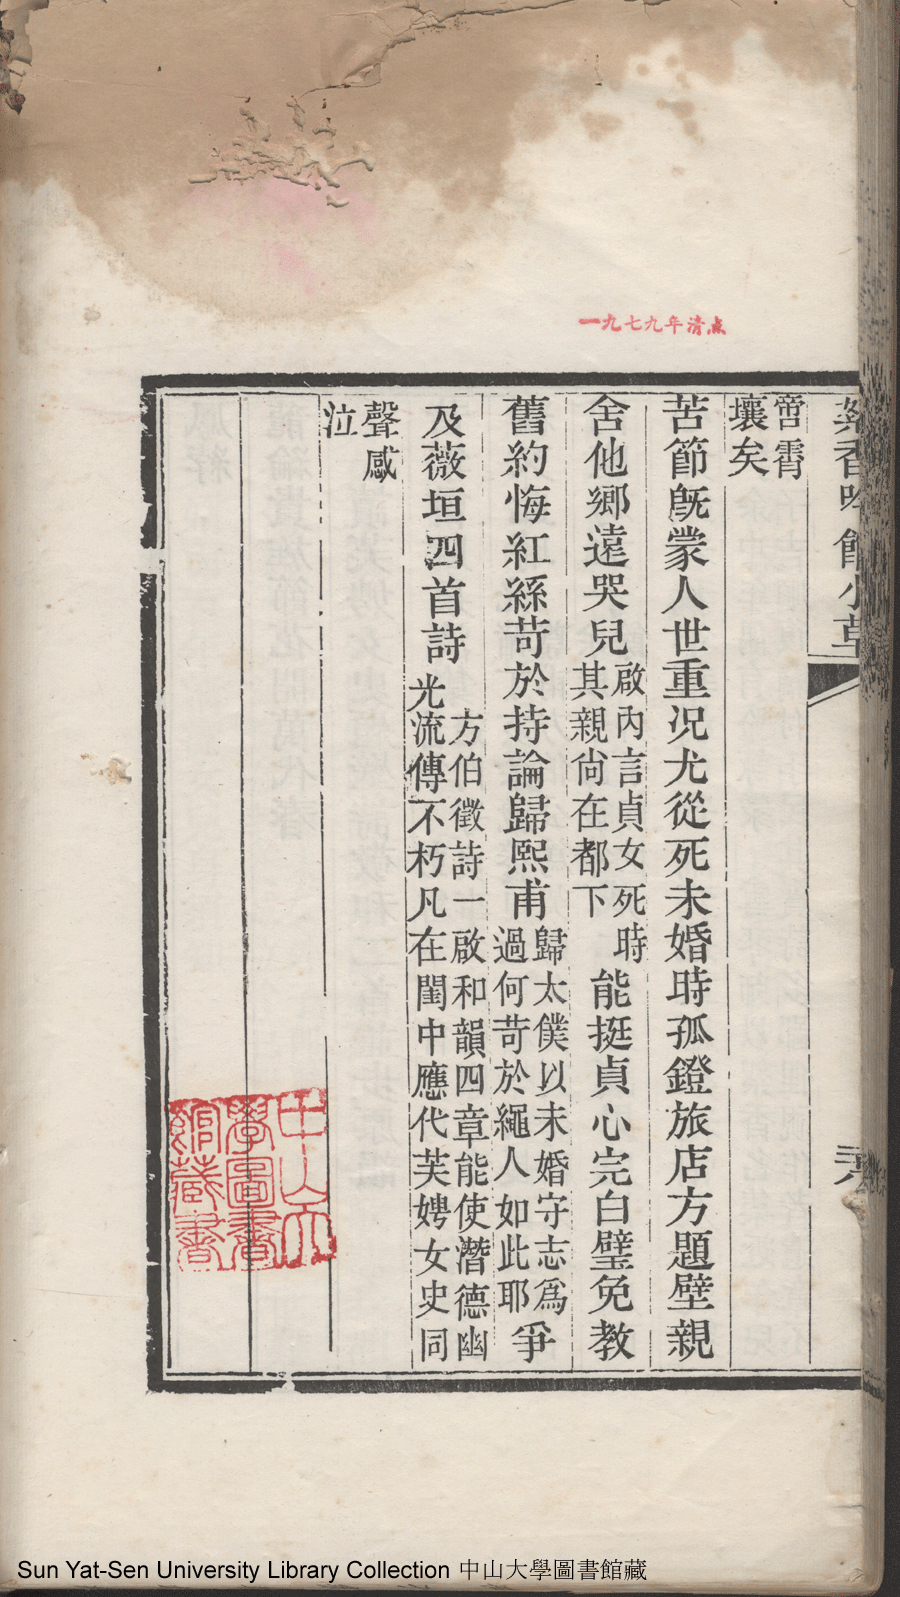 一九七九年清点
香吟館小草
啻霄
壤矣
苦節旣蒙人世重况尤從死未婚時孤鐙旅店方題壁親
舍他鄉遠哭兒啟內言貞女死時其親尚在都下能挺貞心完白璧免教
舊約悔紅絲苛於持論歸熙甫歸太僕以未婚守志爲過何苛於繩人如此耶爭
及薇垣四首詩方伯徵詩一啟和韻四章能使潛德幽光流傳不朽凡在閨中應代芙娉女史同
聲感
泣
中山大
學圖書
館藏書
Sun Yat-Sen University Library Collection 中山大學圖書館藏